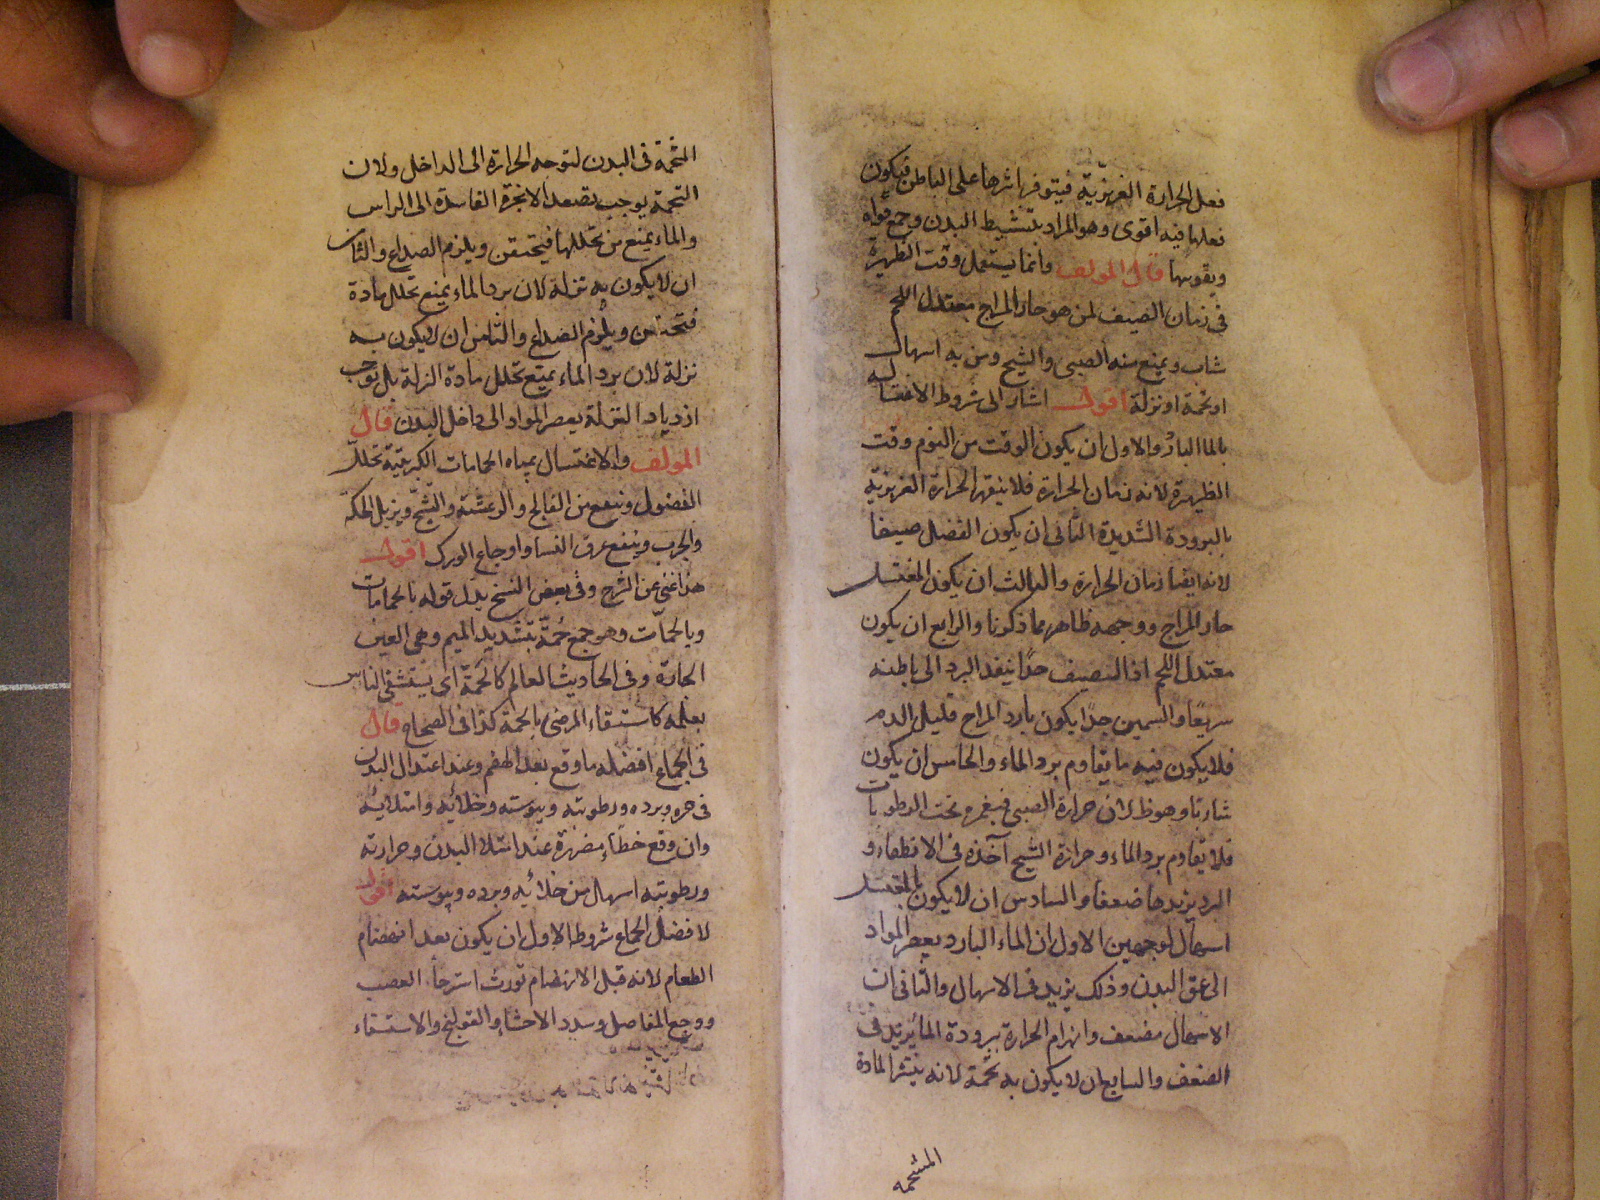 فعل الحرارة الغريزية فيتوفر اثرها على الباطن فيكون
فعلها فيه اقوى وهو المراد بتنشيط البدن وجمع قواه
وبقوتها قال المولف وانما يستعمل وقت الظهيرة
فى زمان الصيف لمن هو حار المزاج معتدل اللحم
شاب ويمنع منه الصبى والشيخ ومن به اسهال
او تخمة او نزلة اقول اشار الى شروط الاغتسال
بالماء البارد والاول ان يكون الوقت من اليوم وقت
الظهيرة لانه زمان الحرارة فلا ينقهر الحرارة الغريزية
بالبرودة الشديدة الثانى ان يكون الفصل صيفا
لانه ايضا زمان الحرارة والثالث ان يكون المغتسل
حار المزاج ووجهه ظاهر مما ذكرنا والرابع ان يكون
معتدل اللحم اذ النصيف جدا ينفذ البرد الى باطنه
سريعا والسمين جدا يكون بارد المزاج قليل الدم
فلا يكون فيه ما يقاوم برد الماء والخامس ان يكون
شابا وهو ظ لان حرارة الصبى منغمرة تحت الرطوبات
فلا يقاوم برد الماء وحرارة الشيخ آخذة فى الانطفاء و
البرد يزيدها ضعفا والسادس ان لا يكون بالمغتسل
اسهال لوجهين الاول ان الماء البارد يعصر المواد
الى عمق البدن وذلك يزيد فى الاسهال والثانى ان
الاسهال مضعف وانهزام الحرارة ببرودة الماء يزيد فى
الضعف والسابع ان لا يكون به تخمة لانه ينشر المادة
المتخمه
المتخمة فى البدن لتوجه الحرارة الى الداخل ولان
التخمة يوجب تصعد الابخرة الفاسدة الى الراس
والماء يمنع من تحللها فيحتقن ويلزم الصداع والثامن
ان لا يكون به نزلة لان برد الماء يمنع تحلل مادة
فتحتقن ويلزم الصداع والثامن ان لا يكون به
نزلة لان برد الماء يمنع تحلل مادة النزلة بل يوجب
ازدياد النزلة بعصر المواد الى داخل البدن قال
المولف والاغتسال بمياه الحمامات الكبريتية تحلل
الفضول وينفع من الفالج والرعشة والتشنج ويزيل الحكة
والجرب وينفع عرق النسا واوجاع الورك اقول
هذا غنى عن الشرح وفى بعض النسخ بدل قوله بالحمامات
وبالحمات وهو جمع حمة بتشديد الميم وهى العين
الحارة وفى الحديث العالم كالحمة اى يستشفى الناس
بعلمه كاستشفاء المرضى بالحمة كذا فى الصحاح قال
فى الجماع افضله ما وقع بعد الهضم وعند اعتدال البدن
فى حره وبرده ورطوبته ويبوسته وخلائه وامتلائه
وان وقع خطاء فضرره عند امتلا البدن وحرارته
ورطوبته اسهل من خلائه وبرده ويبوسته اقول
لافضل الجماع شروط الاول ان يكون بعد انهضام
الطعام لانه قبل الانهضام تورث استرخاء العصب
ووجع المفاصل وسدد الاحشاء والقولنج والاستسقاء